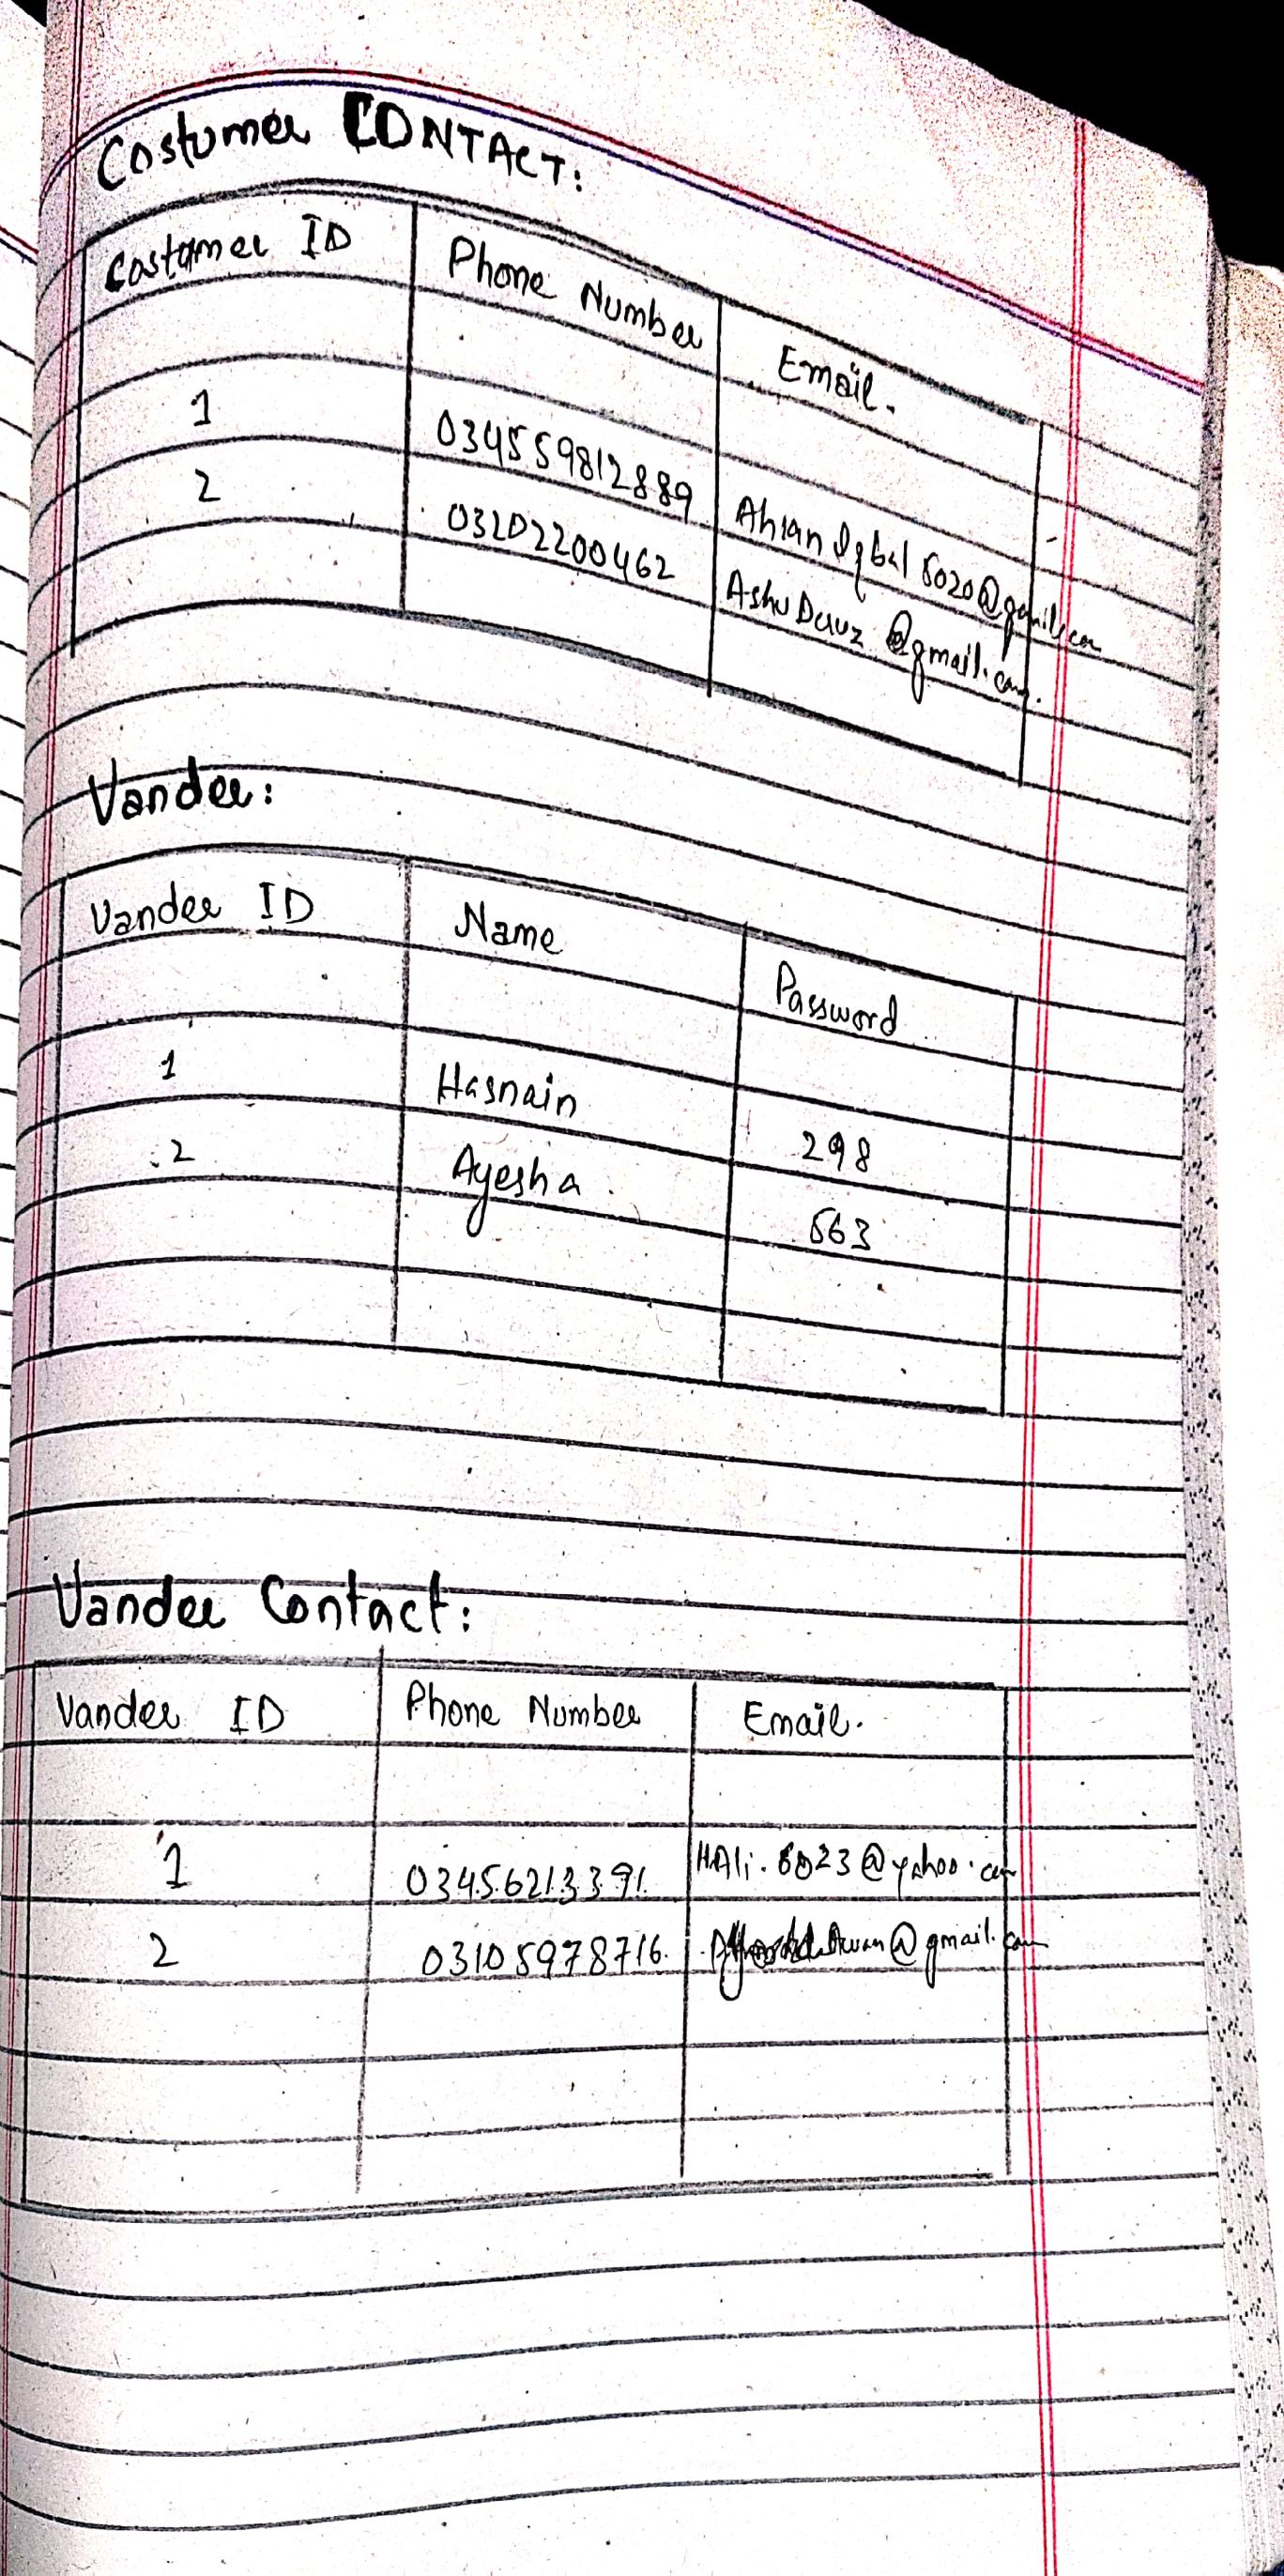 Costumer CONTACT:
Costumer ID Phone Number Email.
1 034559812889 Ahian Iqbal 6020@gmail.com
2 03202200462 Ashu Duuz @gmail.com.
Vander:
Vander ID Name Password
1 Hasnain 298
2 Ayesha 563
Vander Contact:
Vander ID Phone Number Email.
1 03456213391 HAli.6023@yahoo.com
2 03105978716 @gmail.com